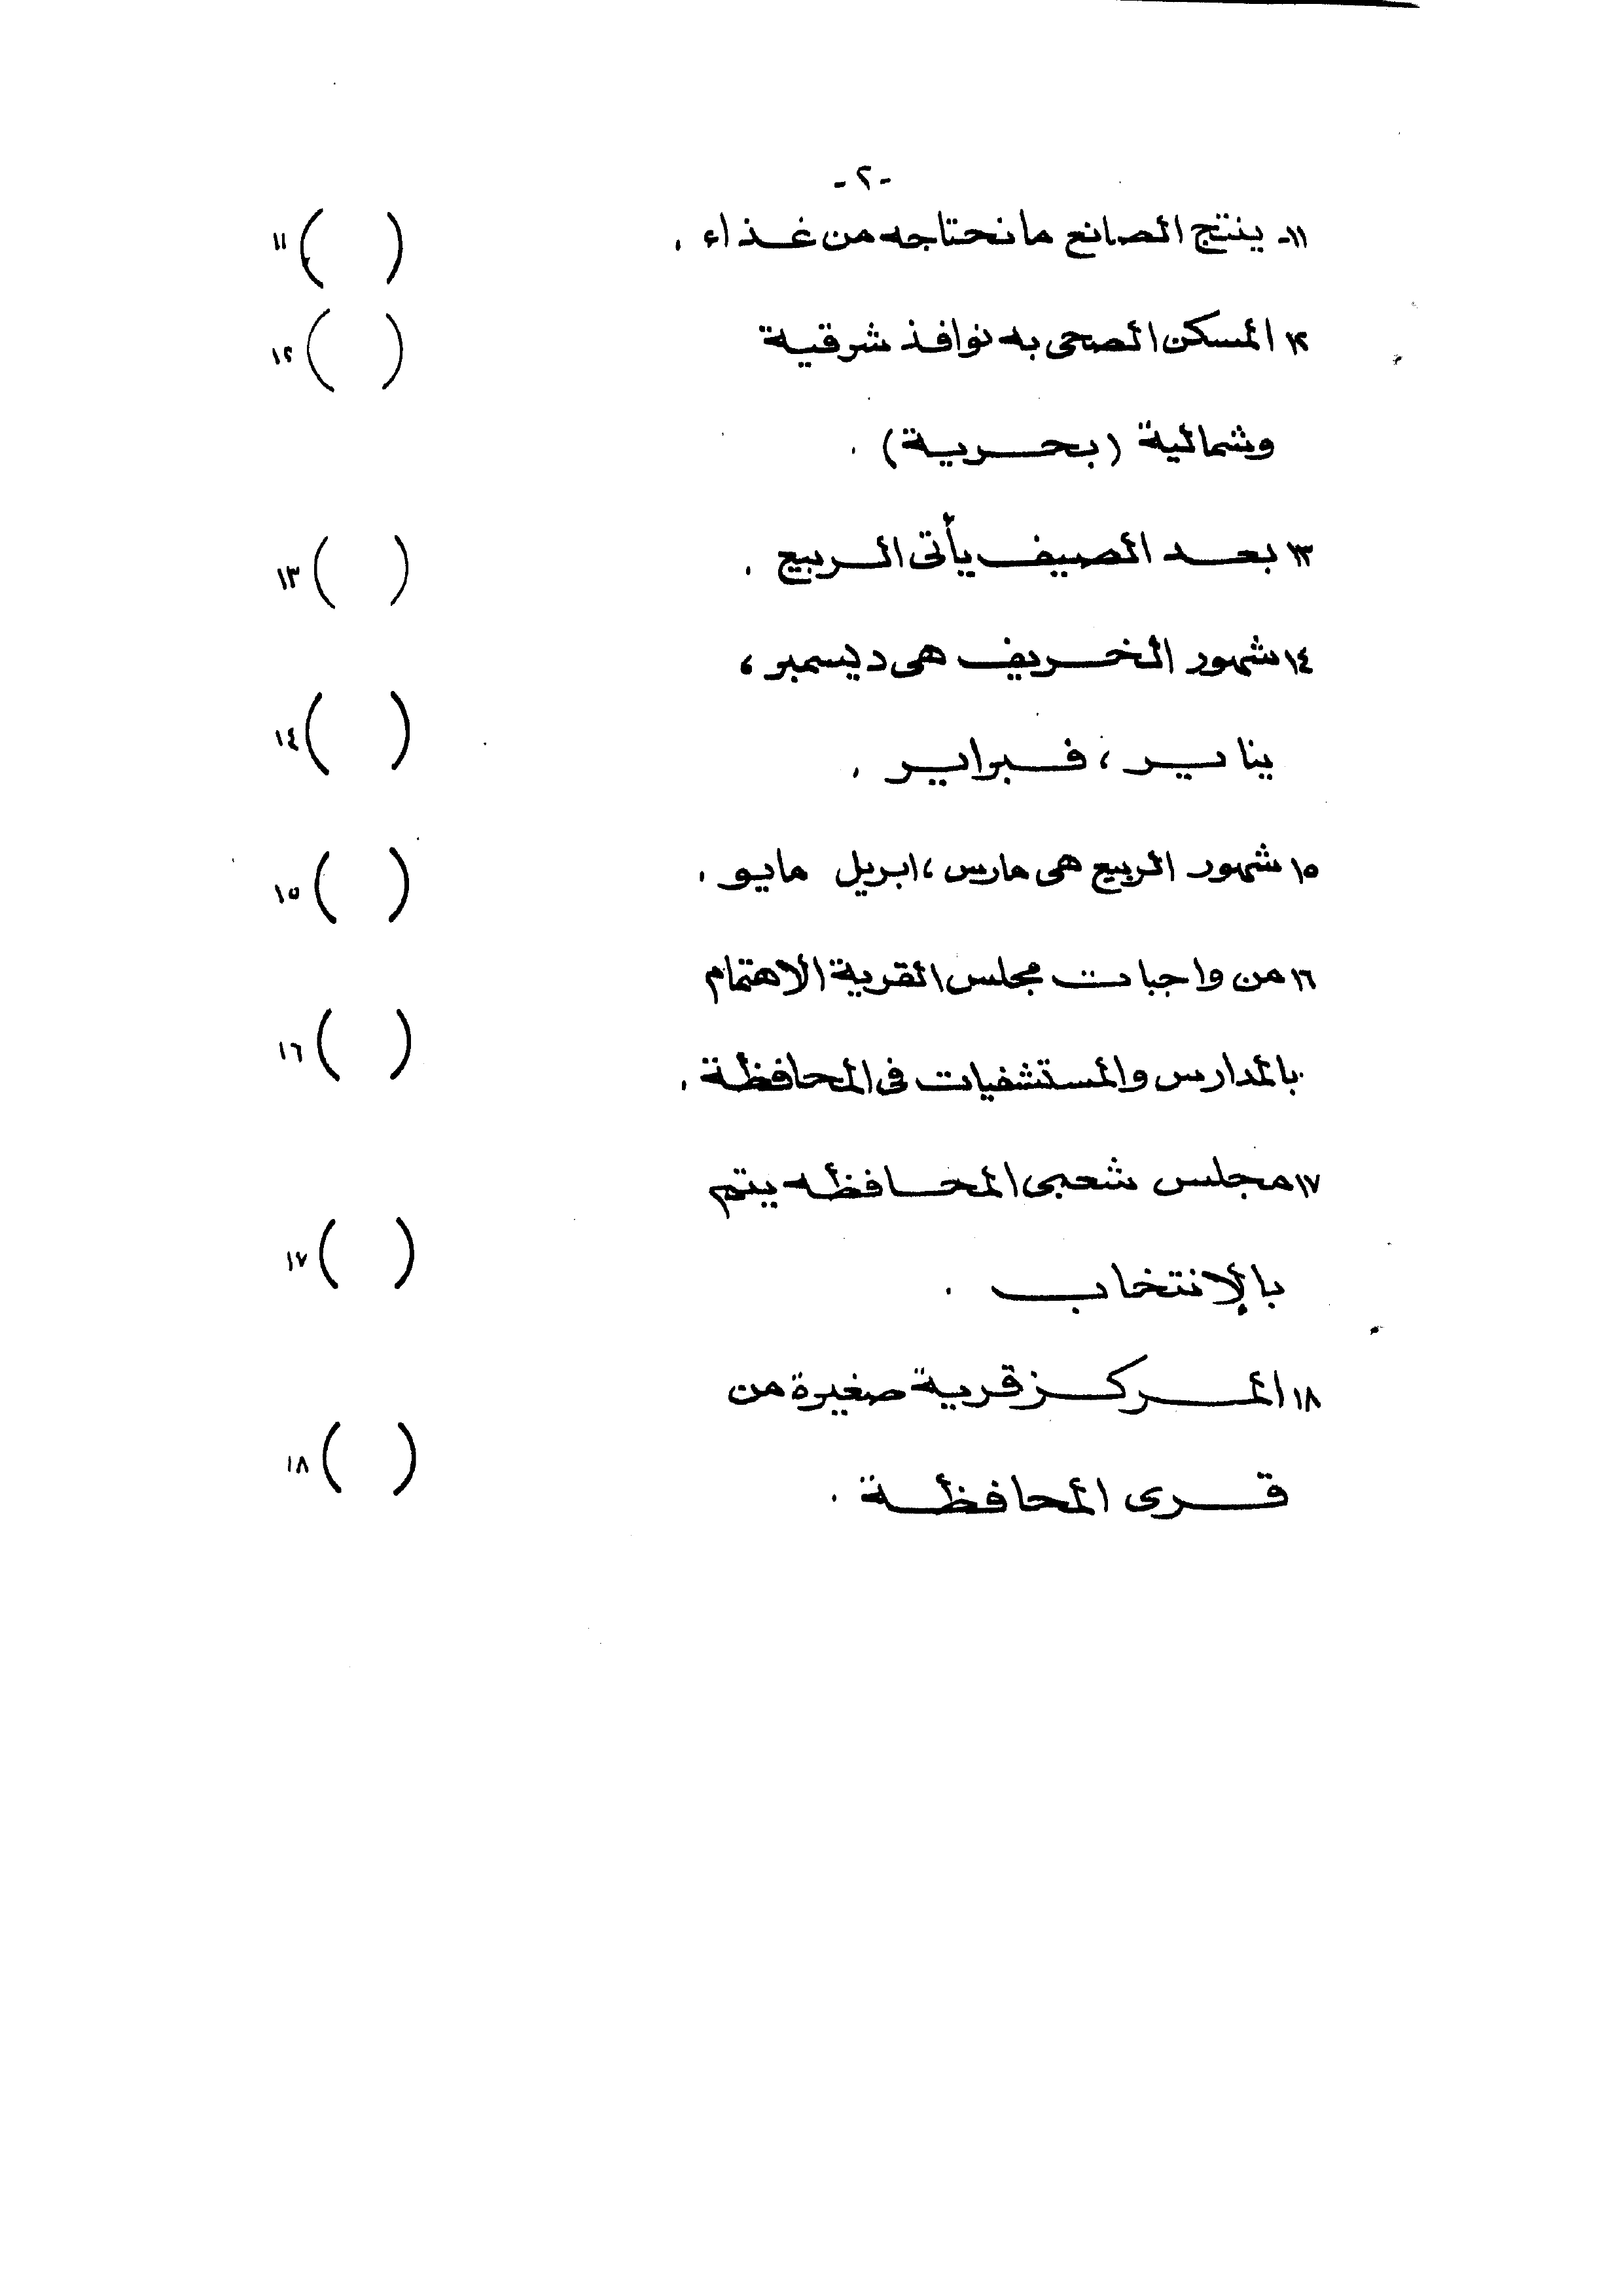 -٢-
١١- ينتج الصانع ما نحتاجه من غذاء . ( ) ١١
١٢ المسكن الصحى به نوافذ شرقية ( ) ١٢
وشمالية (بحرية) .
١٣ بعد الصيف يأتى الربيع . ( ) ١٣
١٤ شهور الخريف هى ديسمبر ،
يناير ، فبراير . ( ) ١٤
١٥ شهور الربيع هى مارس ، ابريل مايو . ( ) ١٥
١٦ من واجبات مجلس القرية الاهتمام
بالمدارس والمستشفيات فى المحافظة . ( ) ١٦
١٧ مجلس شعبى المحافظه يتم
بالإنتخاب . ( ) ١٧
١٨ المركز قرية صغيرة من
قرى المحافظة . ( ) ١٨